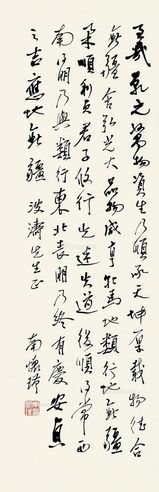 至哉元萬物資生乃順承天坤厚載物德合
無疆含弘光大品物咸亨牝馬地類行地無疆
柔順利貞君子攸行先迷失道後順得常西
南得朋乃與類行東北喪朋乃終有慶安貞
之吉應地無疆 波濤先生正
南懷瑾